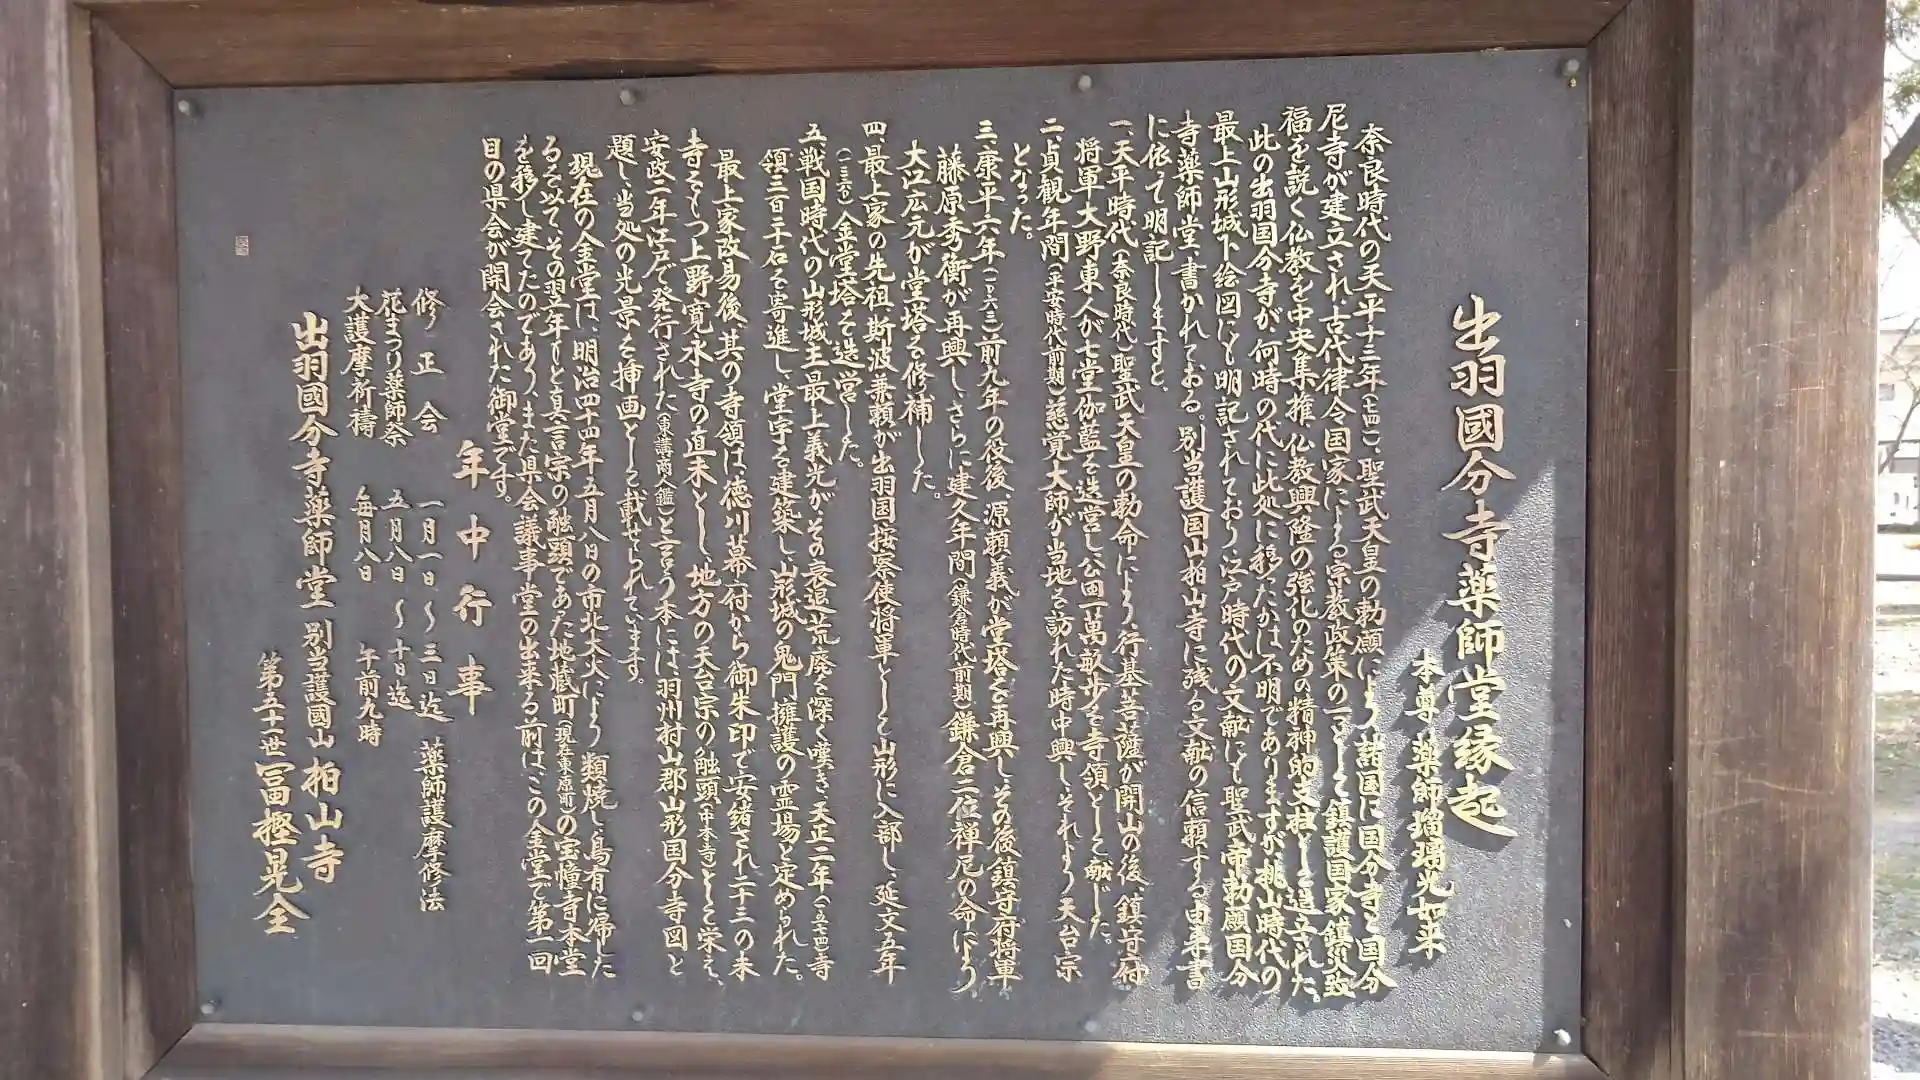 出羽國分寺薬師堂縁起
本尊 薬師瑠璃光如来
奈良時代の天平十三年(七四一)、聖武天皇の勅願により諸国に国分寺と国分
尼寺が建立され、古代律令国家による宗教政策の一つとして鎮護国家、鎮災致
福を説く仏教を中央集権、仏教興隆の強化のための精神的支柱として造立された。
此の出羽国分寺が、何時の代に此処に移ったかは不明でありますが、桃山時代の
最上山形城下絵図にも明記されており江戸時代の文献にも聖武帝勅願国分
寺薬師堂、書かれておる。別当護国山柏山寺に残る文献の信頼する由来書
に依って明記しますと、
一、天平時代(奈良時代)聖武天皇の勅命により、行基菩薩が開山の後、鎮守府
将軍大野東人が七堂伽藍を造営し公田一萬畝歩を寺領として献じた。
二、貞観年間(平安時代前期)慈覚大師が当地を訪れた時中興し、それより天台宗
となった。
三、康平六年(一〇六三)前九年の役後、源頼義が堂塔を再興し、その後鎮守府将軍
藤原秀衡が再興し、さらに建久年間(鎌倉時代前期)鎌倉二位禅尼の命により
大江広元が堂塔を修補した。
四、最上家の先祖、斯波兼頼が出羽国按察使将軍として山形に入部し、延文五年
(一三六〇)金堂塔を造営した。
五、戦国時代の山形城主最上義光がその衰退荒廃を深く嘆き天正二年(一五七四)寺
領三百三千石を寄進し、堂宇を建築し山形城の鬼門擁護の霊場と定められた。
最上家改易後、其の寺領は、徳川幕府から御朱印で安緒され二十三の末
寺をもつ上野寛永寺の直末とし、地方の天台宗の触頭(中本寺)として栄え、
安政二年江戸で発行された(東講商人鑑)と言う本には、羽州村山郡山形国分寺図と
題し、当処の光景を挿画として載せられています。
現在の金堂は、明治四十四年五月八日の市北大火により類焼し烏有に帰した
るを以て、その翌年もと真言宗の触頭であった地蔵町(現在東原町)の宝幢寺本堂
を移し建てたのであり、また県会議事堂の出来る前は、この金堂で第一回
日の県会が開会された御堂です。
年中行事
修正会 一月一日〜三日迄 薬師護摩修法
花まつり薬師祭 五月八日〜十日迄
大護摩祈禱 毎月八日 午前九時
出羽國分寺薬師堂 別当護國山柏山寺
第五十一世冨樫晃全